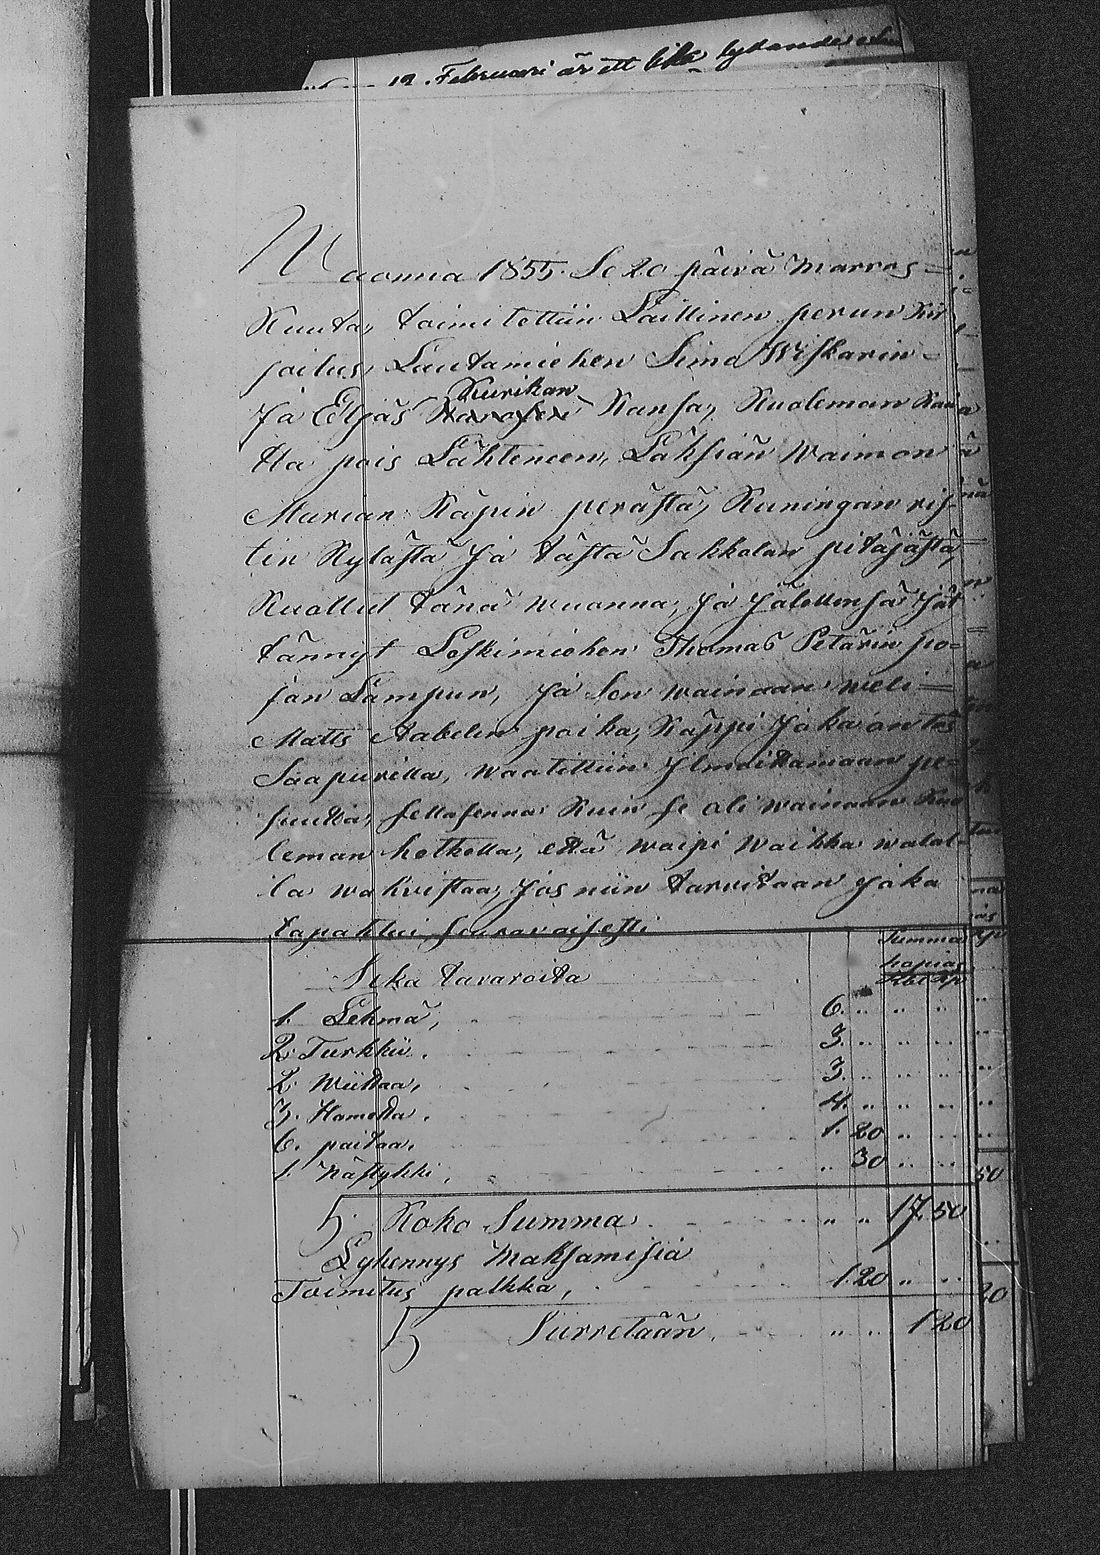 19. Februari är ett lika lydande
Wuonna 1855. Se 20 päivä Marras=
Kuuta, toimitettiin Laillinen perun Kir
joitus, Lautamiehen Simo Wiskarin=
Kurikan
Ja Eljas Kansa, Kuoleman Kau
tta pois Lähteneen, Läksiän Waimon
Marian Käpin perästä, Kuningan ris-
tin Kylästä Ja tästä Sakkolan pitäjästä,
Kuollut tänä wuonna, Ja Jälellensä Jät
tännyt Leskimiehen Thomas Petärin po=
jan Lampun, Ja Sen wainaan weli=
Matts Aabelin poika, Käppi Joka on täs
Saapuvilla, waatittiin Ylmoittamaan pe=
suutta, sellasenna Kuin se oli wainaan Kuo
leman hetkellä, että woipi Waikka walal-
la wahvistaa, Jos niin tarvitaan Joka
tapahtui seuravaisesti
Summa
hopias
Rbl Kp
Sika tavaroita
1. Lehmä, 6. " " "
2. Turkkii. 3. " " "
2. Wiittaa, 3. " " "
3. Hametta. 4. " " "
6. paitaa. 1. 20 " "
1. Nästykki, " 30 " "
50
Koko Summa " " 17 50
Lyhennys Maksamisia
Toimitus palkka, 1 20 " "
20
Siirretään. " " 1 20